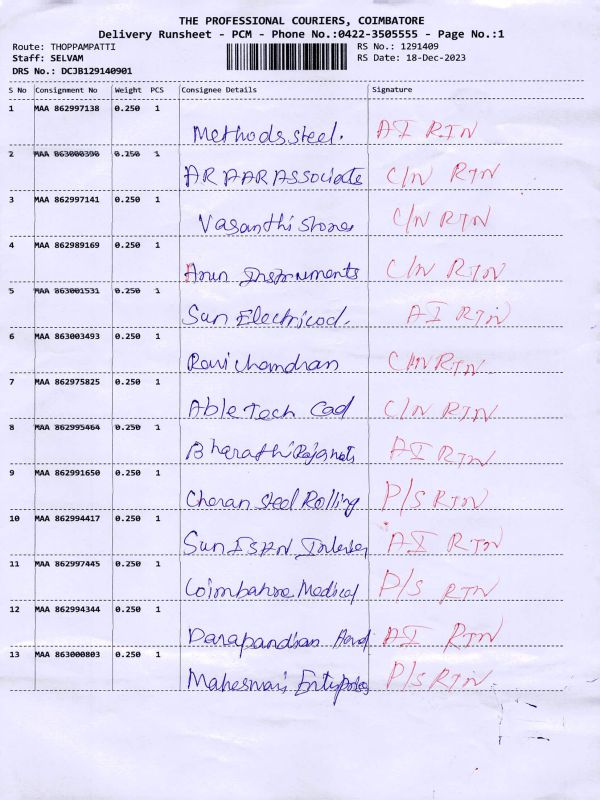 THE PROFESSIONAL COURIERS, COIMBATORE
Delivery Runsheet - PCM - Phone No.:0422-3505555 - Page No.:1
Route: THOPPAMPATTI RS No.: 1291409
Staff: SELVAM RS Date: 18-Dec-2023
DRS No.: DCJB129140901
S No Consignment No Weight PCS Consignee Details Signature
1 MAA 862997138 0.250 1
Methods steel. AI RTN
2 MAA 863000390 0.150 1
AR AAR Associate C/N RTN
3 MAA 862997141 0.250 1
Vasanthi Stores C/N RTN
4 MAA 862989169 0.250 1
Arun Instruments C/N RTN
5 MAA 863001531 0.250 1
Sun Electricod. AI RTN
6 MAA 863003493 0.250 1
Ravi chandran C/N RTN.
7 MAA 862975825 0.250 1
Able Tech Cad C/N RTN
8 MAA 862995464 0.250 1
Bharathi AI RTN
9 MAA 862991650 0.250 1
Cheran Steel Rolling P/S RTN
10 MAA 862994417 0.250 1
Sun AI RTN
11 MAA 862997445 0.250 1
Coimbatore Medical P/S RTN
12 MAA 862994344 0.250 1
AI RTN
13 MAA 863000803 0.250 1
Maheswari P/S RTN